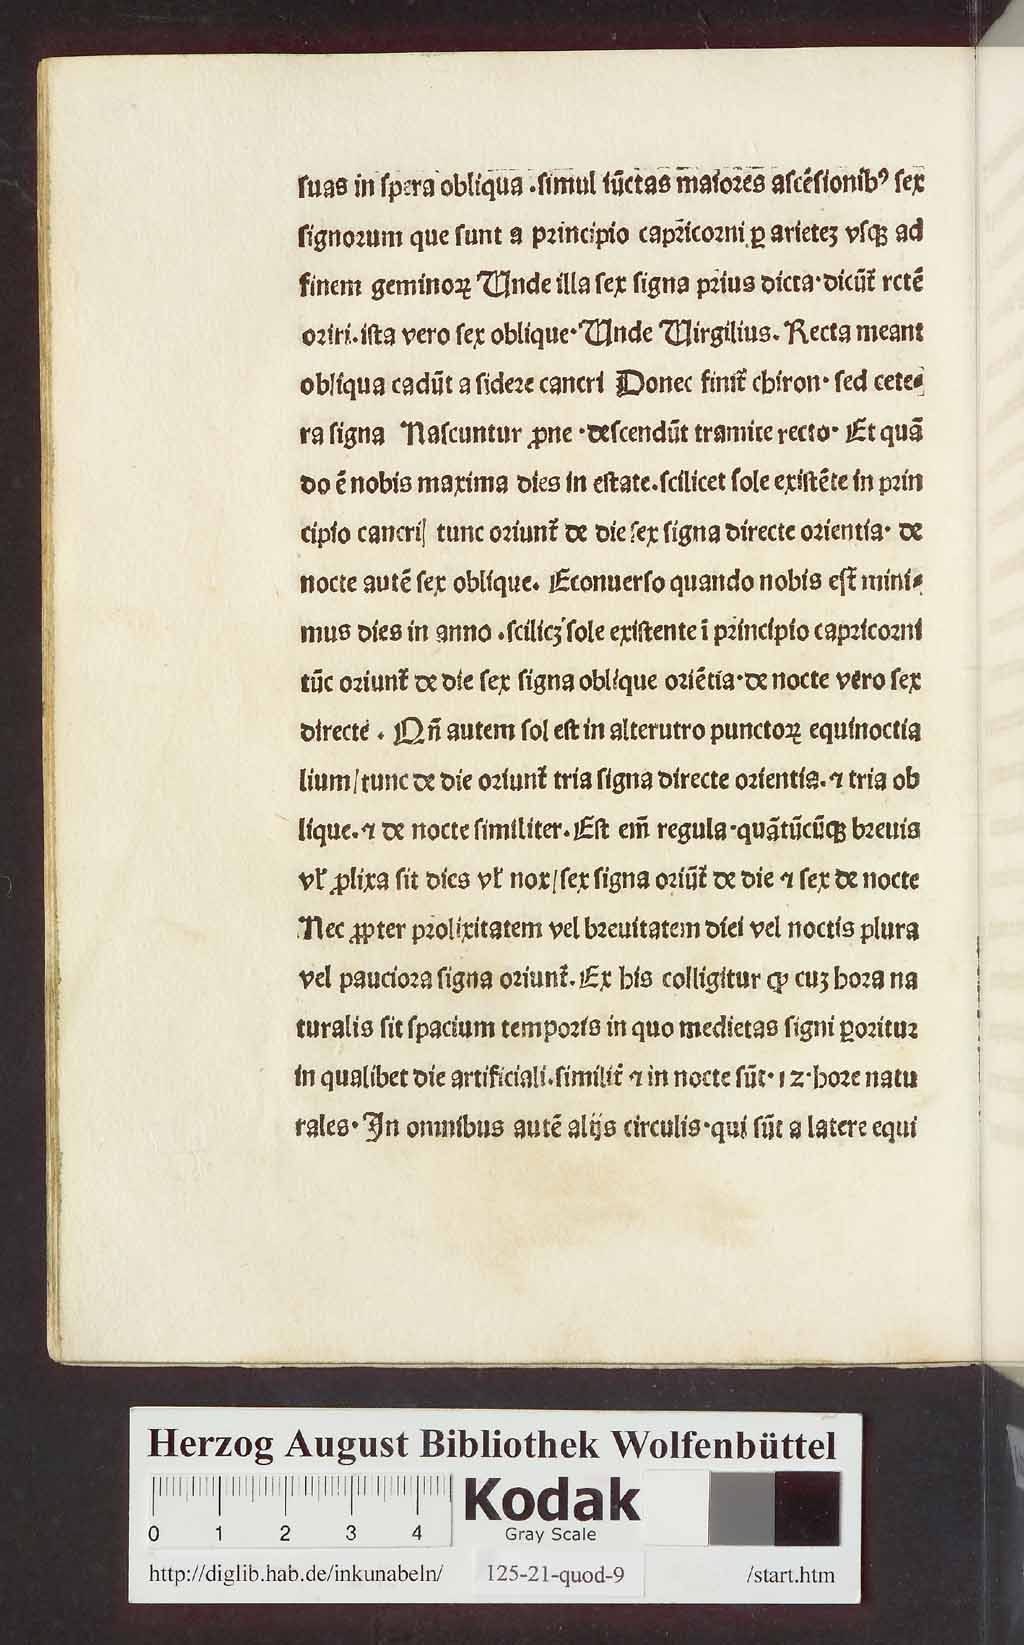 ſuas in ſpera obliqua .ſimul iūctas maiores aſcēſionibꝰ ſex
ſignorum que ſunt a principio capricorni ꝑ arieteꝫ vſqꝫ ad
finem geminoꝝ Unde illa ſex ſigna prius dicta·dicūt̄ rctē
oriri. iſta vero ſex oblique· Unde Uirgilius. Recta meant
obliqua cadūt a ſidere cancri Donec finit̄ chiron· ſed cete⸗
ra ſigna Naſcuntur ꝓne ·deſcendūt tramite recto· Et quā
do ē nobis maxima dies in eſtate.ſcilicet ſole exiſtēte in prin
cipio cancri| tunc oriunt̄ de die ſex ſigna directe orientia· de
nocte autē ſex oblique. Econuerſo quando nobis eſt mini⸗
mus dies in anno .ſcilicꝫ ſole exiſtente ī principio capricorni
tūc oriunt̄ de die ſex ſigna oblique oriētia·de nocte vero ſex
directe . Qn̄ autem ſol eſt in alterutro punctoꝝ equinoctia
lium/tunc de die oriunt̄ tria ſigna directe orientia.⁊ tria ob
lique.⁊ de nocte ſimiliter. Eſt em̄ regula·quātūcūqꝫ breuis
vl̄ ꝓlixa ſit dies vl̄ nox/ſex ſigna oriūt̄ de die ⁊ ſex de nocte
Nec ꝓpter prolixitatem vel breuitatem diei vel noctis plura
vel pauciora ſigna oriunt̄. Ex his colligitur ꝙ cuꝫ hora na
turalis ſit ſpacium temporis in quo medietas ſigni ꝑoritur
in qualibet die artificiali.ſimilit̄ ⁊ in nocte ſūt·12·hore natu
rales· In omnibus autē alijs circulis·qui ſūt a latere equi
Herzog August Bibliothek Wolfenbüttel
0 1 2 3 4
Kodak
Gray Scale
http://diglib.hab.de/inkunabeln/ 125-21-quod-9 /start.htm